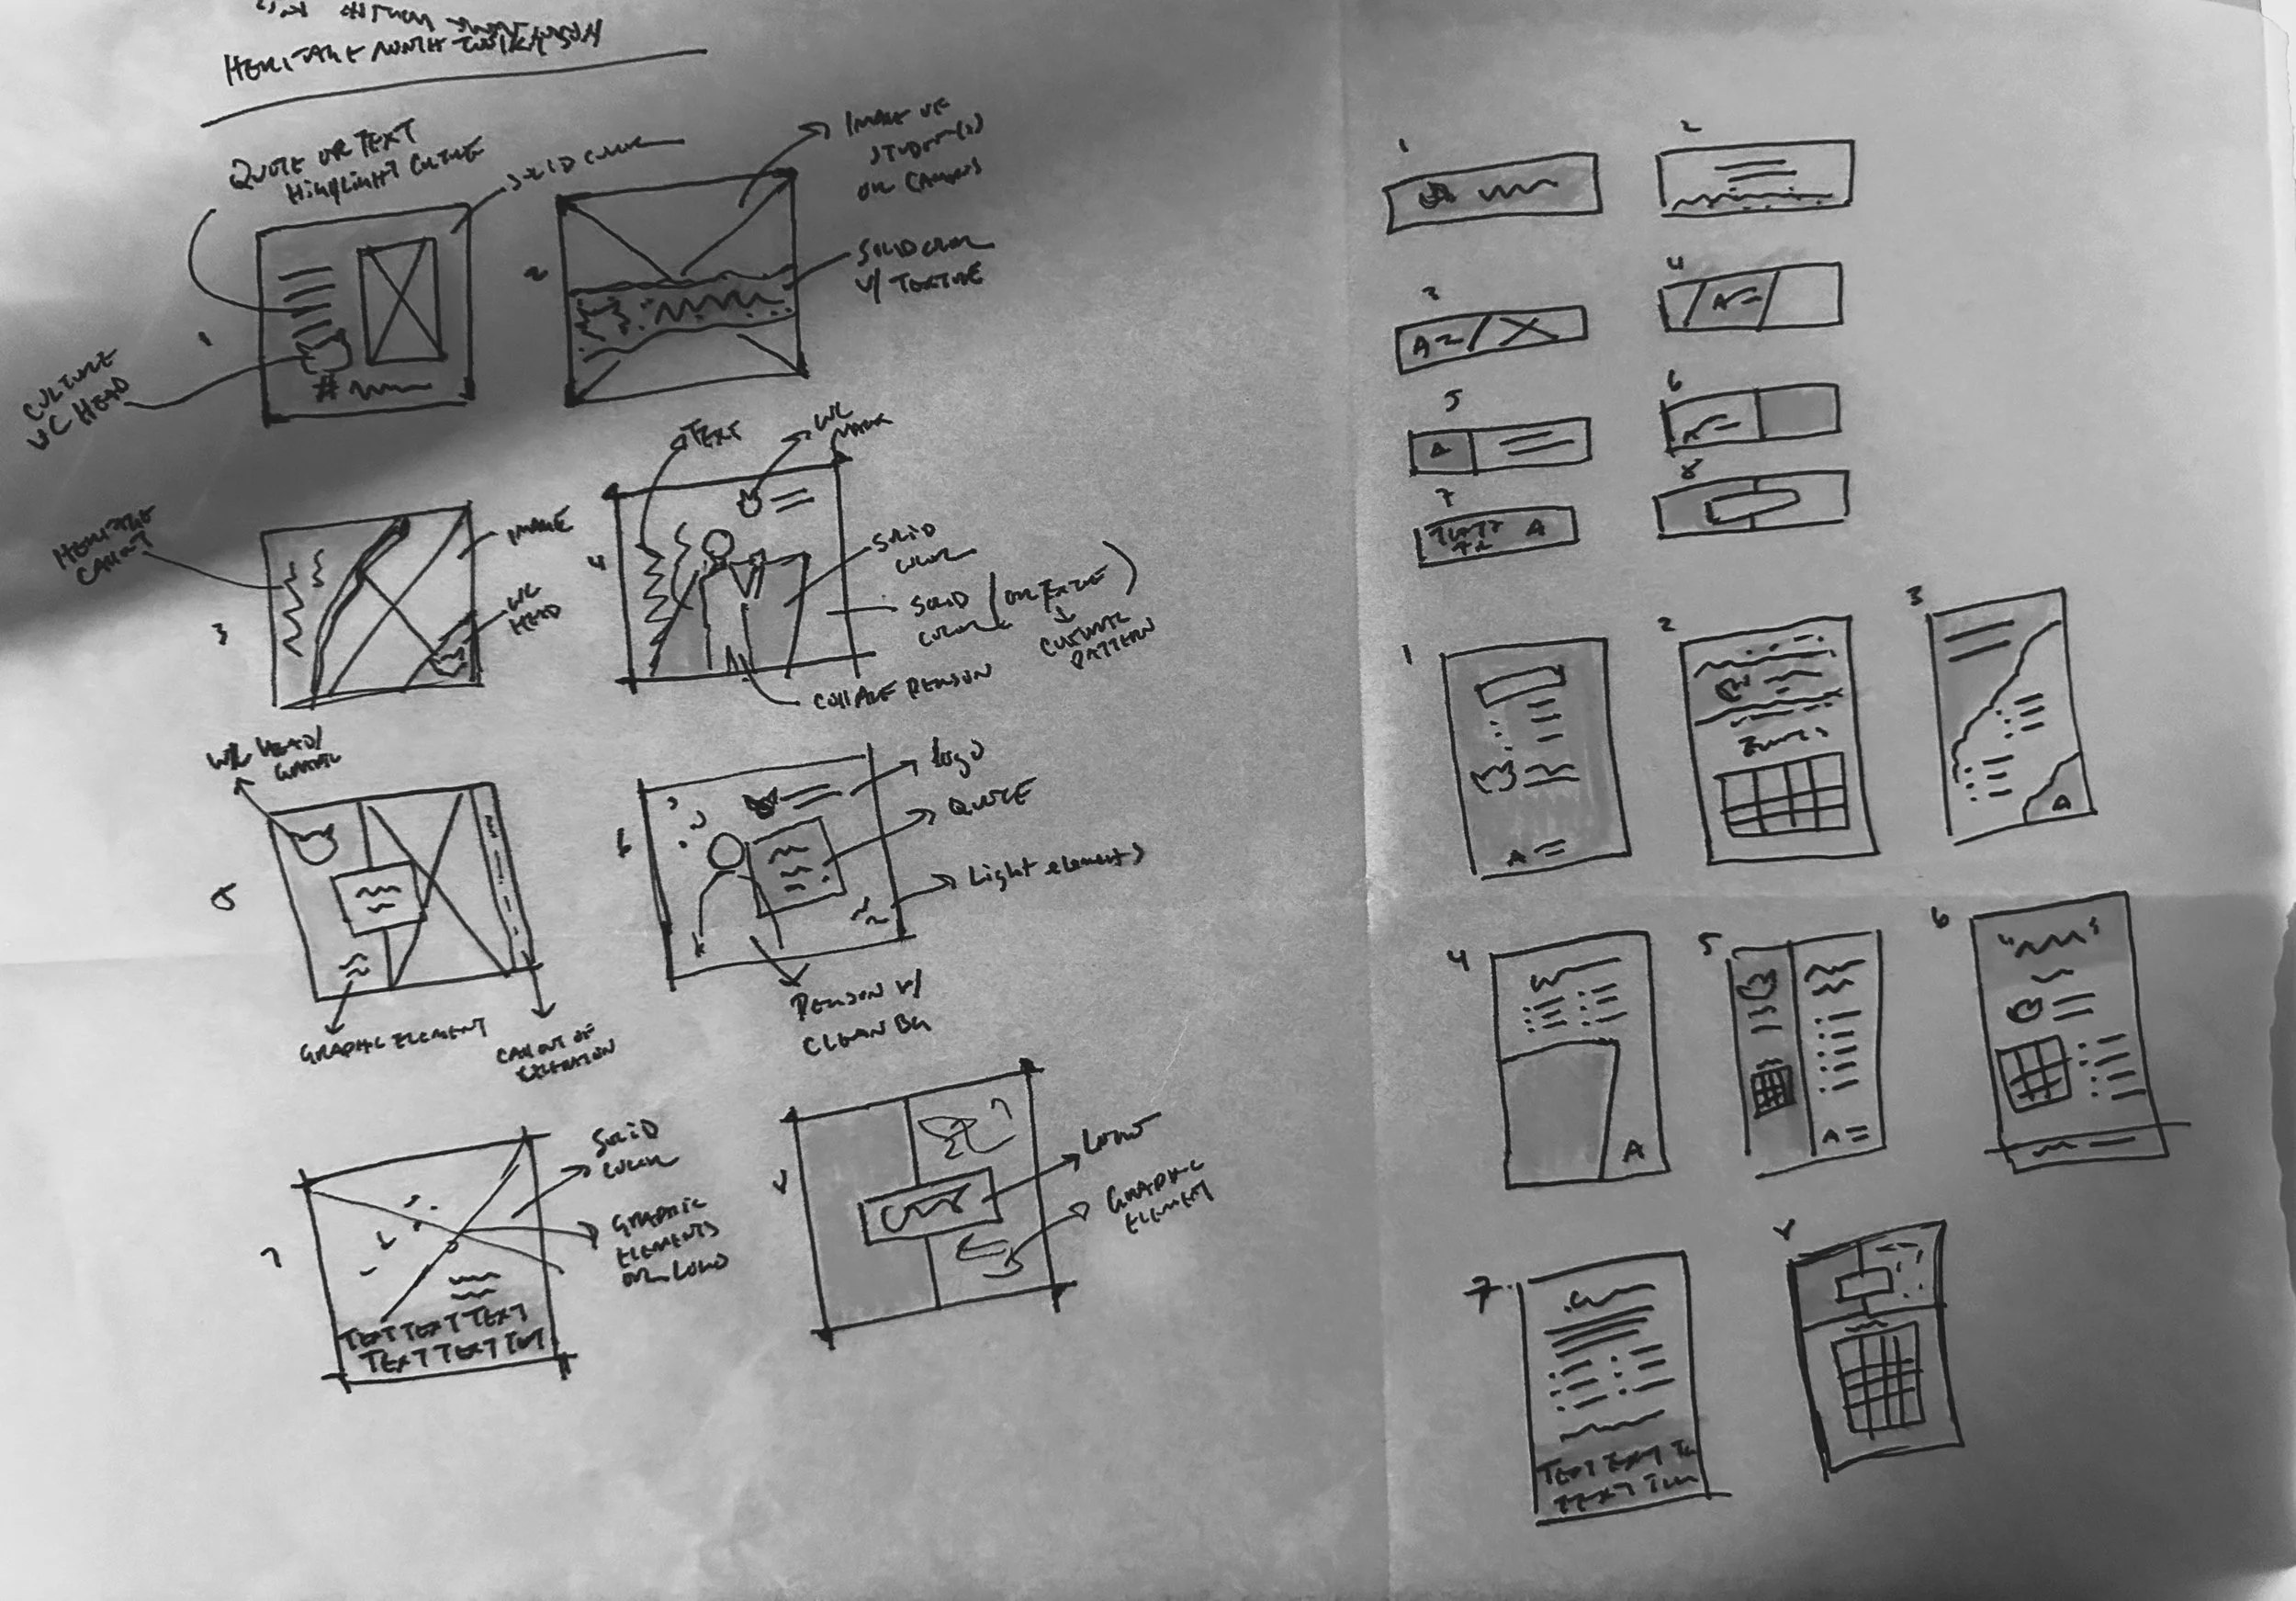 HERITAGE MONTH
QUOTE OR TEXT
HIGHLIGHT CULTURE
SOLID COLOR
IMAGE OF
STUDENT(S)
OR CAMPUS
1
2
SOLID COLOR
W/ TEXTURE
CULTURE
WC HEAD
#
TEXT
WC
MARK
HERITAGE
CALLOUT
IMAGE
WC
HEAD
3
4
SOLID
COLOR
SOLID
COLOR
(OR TEXTURE)
CULTURAL
PATTERN
COLLAGE PERSON
WC HEAD/
GRAPHIC
5
6
logo
QUOTE
Light elements
GRAPHIC ELEMENT
CALLOUT OF
PERSON W/
CLEAN BG
7
SOLID
COLOR
GRAPHIC
ELEMENTS
OR LOGO
TEXT TEXT TEXT
TEXT TEXT TEXT
8
LOGO
GRAPHIC
ELEMENT
1
2
3
4
A
A
5
6
A
7
8
A
1
2
3
A
A
4
5
6
A
A
7
8
TEXT TEXT
TEXT